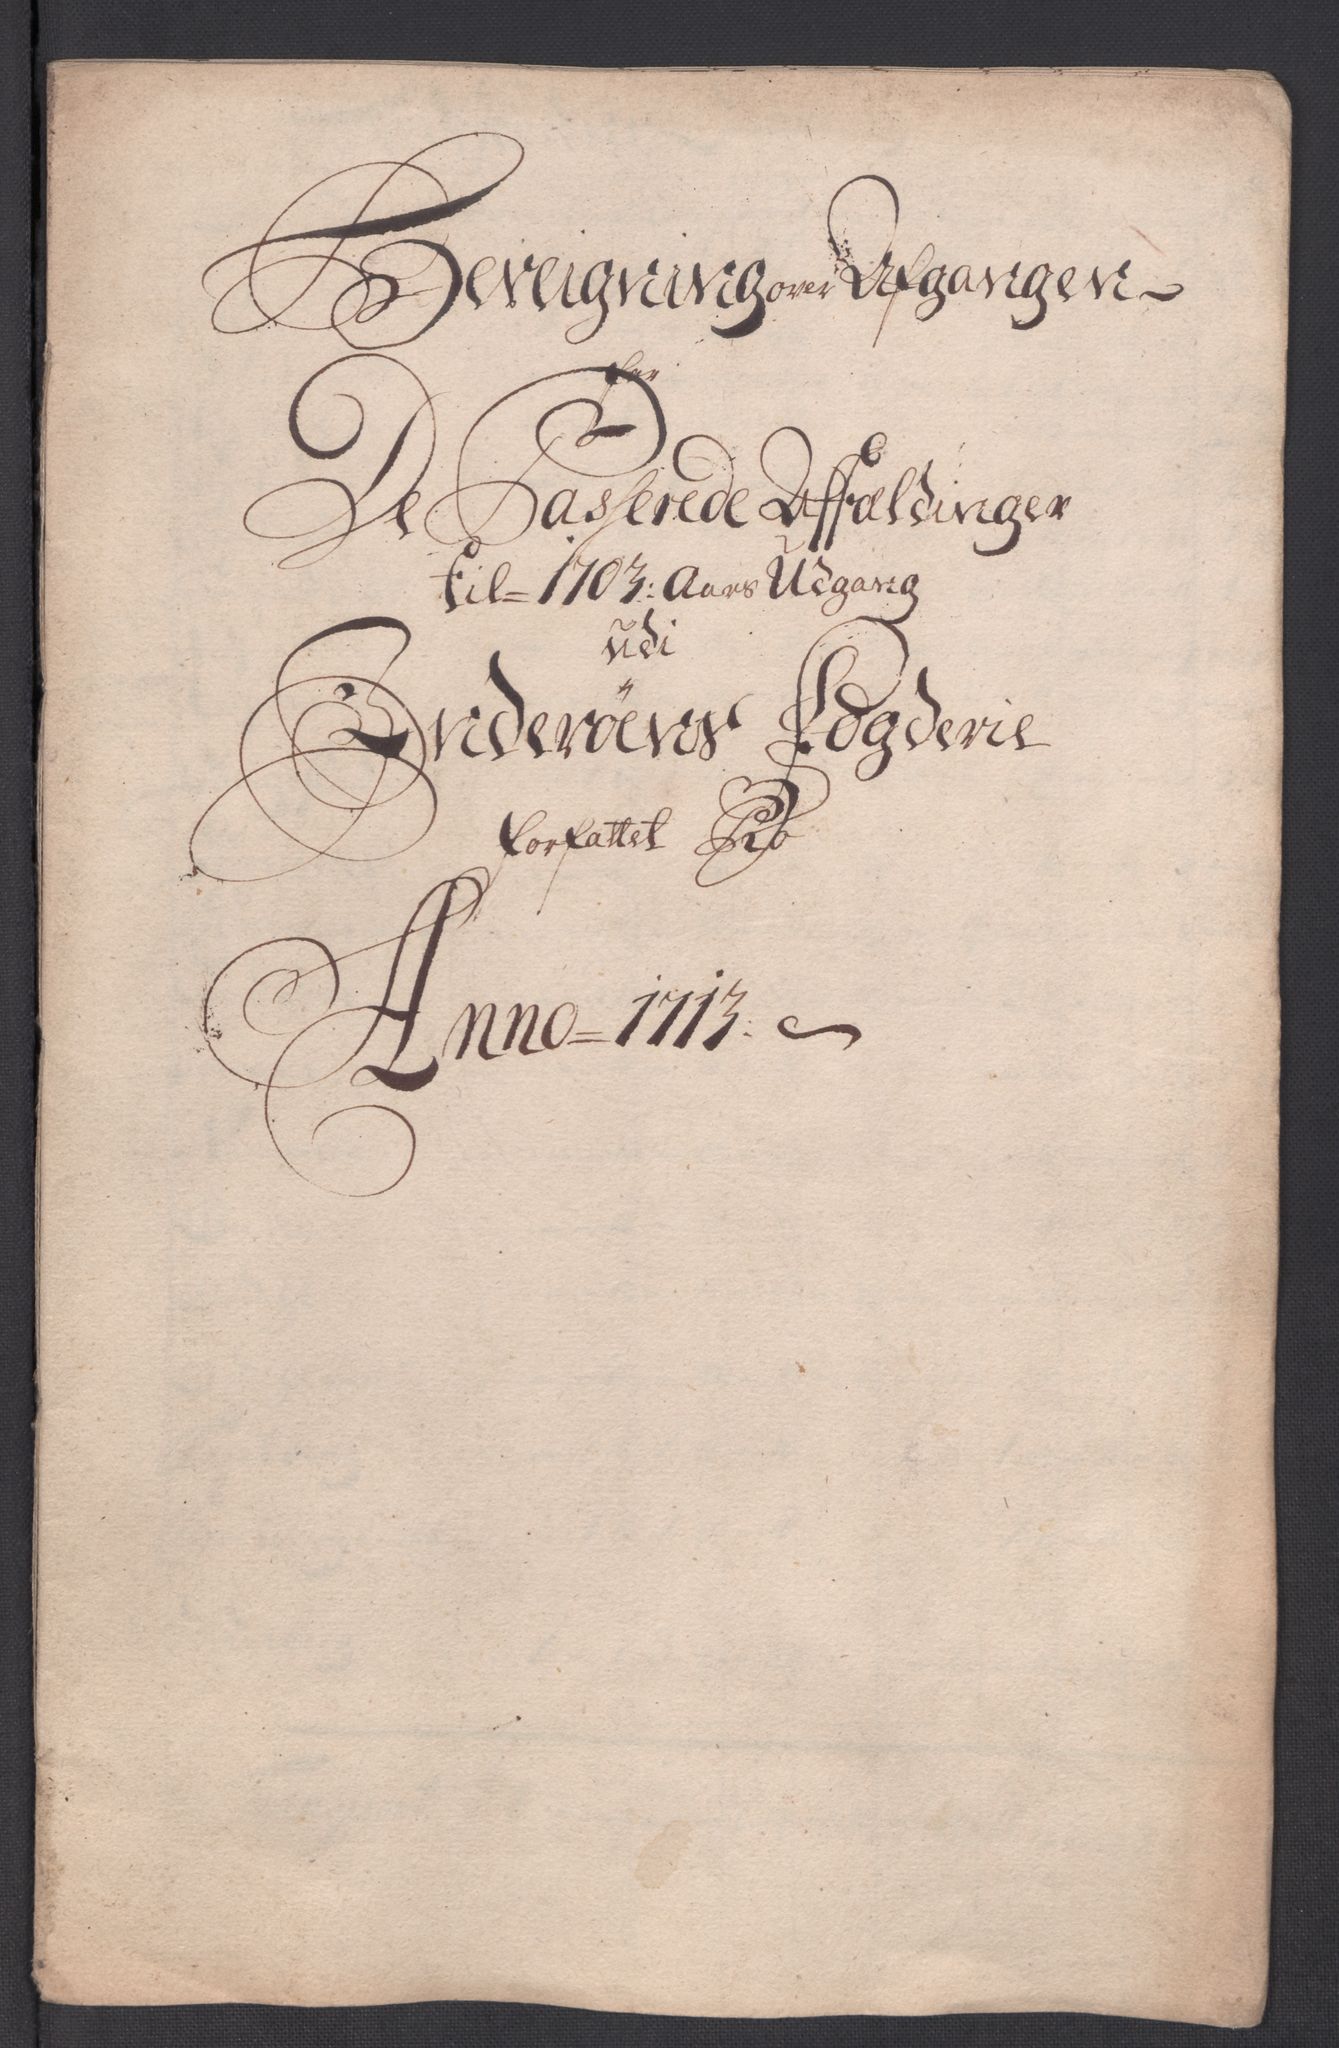 Bereigning over Afgangen
for
De Passerede Affældinger
til 1703: Aars Udgang
udi
Inderöens Fogderie
forfattet Pro
Anno 1713.